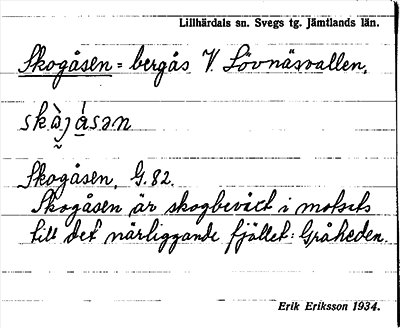 Lillhärdals sn. Svegs tg. Jämtlands län.
Skogåsen = bergås V. Lövnäsvallen.
skà̰ɡásən
Skogåsen, G. 82.
Skogåsen är skogbeväxt i motsats
till det närliggande fjället: Gråheden.
Erik Eriksson 1934.